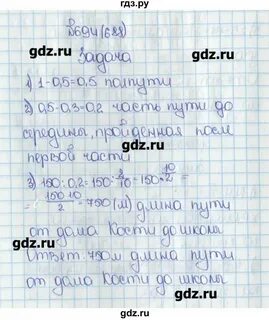 №694(688)
Задача
1) 1-0,5=0,5 полпути
2) 0,5-0,3=0,2 часть пути до
середины, пройденная после
первой части
3) 150:0,2=150:2/10=150·10/2=
=150·10/2=750(м) длина пути
от дома Кости до школы
Ответ: 750м длина пути
от дома Кости до школы
gdz.ru
gdz.ru
gdz.ru
gdz.ru
gdz.ru
gdz.ru